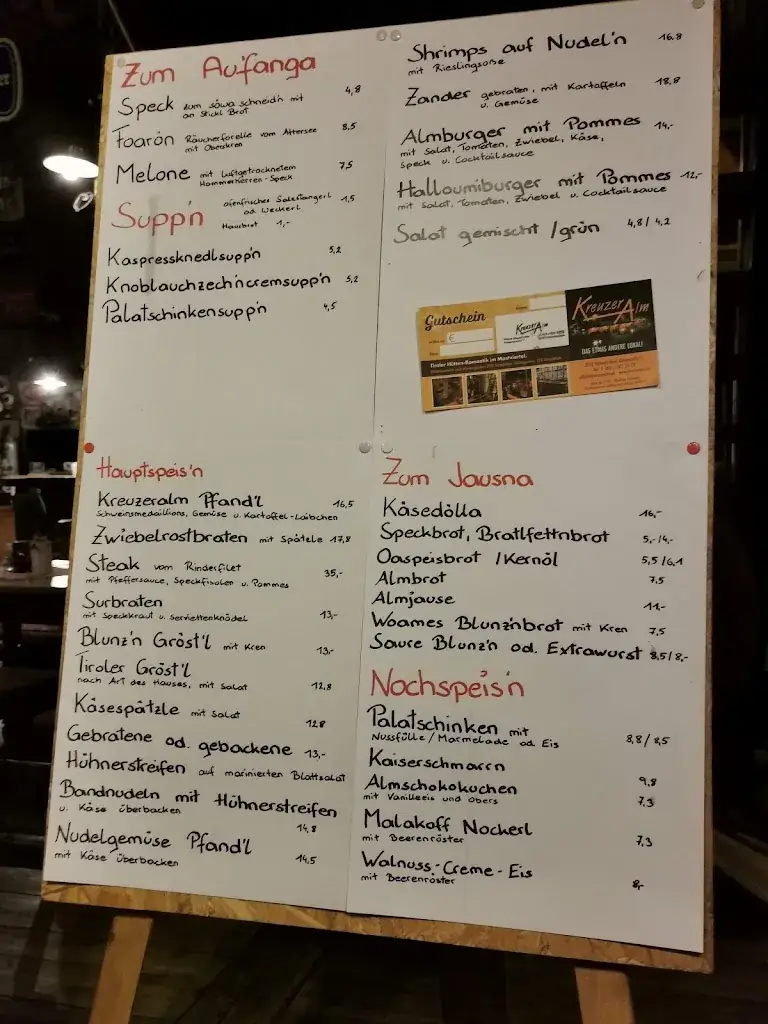 Zum Au'fanga
Speck zum sówa schneid'n mit
an Stickl Brot 4,8
Foarön Räucherforelle vom Attersee
mit Oberkren 8,5
Melone mit luftgetrocknetem
Hammerherren-Speck 7,5
Supp'n ofenfrisches Salzstangerl
od. Weckerl 1,5
Hausbrot 1,-
Kaspressknedlsupp'n 5,2
Knoblauchzech'ncremsupp'n 5,2
Palatschinkensupp'n 4,5
Shrimps auf Nudel'n 16,8
mit Rieslingsoße
Zander gebraten, mit Kartoffeln
u. Gemüse 18,8
Almburger mit Pommes 14,-
mit Salat, Tomaten, Zwiebel, Käse,
Speck u. Cocktailsauce
Halloumiburger mit Pommes 12,-
mit Salat, Tomaten, Zwiebel u. Cocktailsauce
Salat gemischt / grün 4,8 / 4,2
Gutschein
€
KreuzerAlm
KreuzerAlm
DAS ETWAS ANDERE LOKAL!
Tiroler Hütten-Romantik im Mostviertel.
Hauptspeis'n
Kreuzeralm Pfand'l 16,5
Schweinsmedaillions, Gemüse u. Kartoffel-Laibchen
Zwiebelrostbraten mit Spätzle 17,8
Steak vom Rinderfilet 35,-
mit Pfeffersauce, Speckfisolen u. Pommes
Surbraten
mit Speckkraut u. Serviettenknödel 13,-
Blunz'n Gröst'l mit Kren 13,-
Tiroler Gröst'l
nach Art des Hauses, mit Salat 12,8
Käsespätzle mit Salat 12,8
Gebratene od. gebackene 13,-
Hühnerstreifen auf marinierten Blattsalat
Bandnudeln mit Hühnerstreifen
u. Käse überbacken 14,8
Nudelgemüse Pfand'l
mit Käse überbacken 14,5
Zum Jausna
Kåsedölla 16,-
Speckbrot, Bratlfettnbrot 5,- /4,-
Oaspeisbrot / Kernöl 5,5 / 6,1
Almbrot 7,5
Almjause 11,-
Woames Blunz'nbrot mit Kren 7,5
Saure Blunz'n od. Extrawurst 8,5 / 8,-
Nochspeis'n
Palatschinken mit
Nussfülle / Marmelade od Eis 8,8 / 8,5
Kaiserschmarrn 9,8
Almschokokuchen
mit Vanilleeis und Obers 7,3
Malakoff Nockerl
mit Beerenröster 7,3
Walnuss-Creme-Eis
mit Beerenröster 8,-